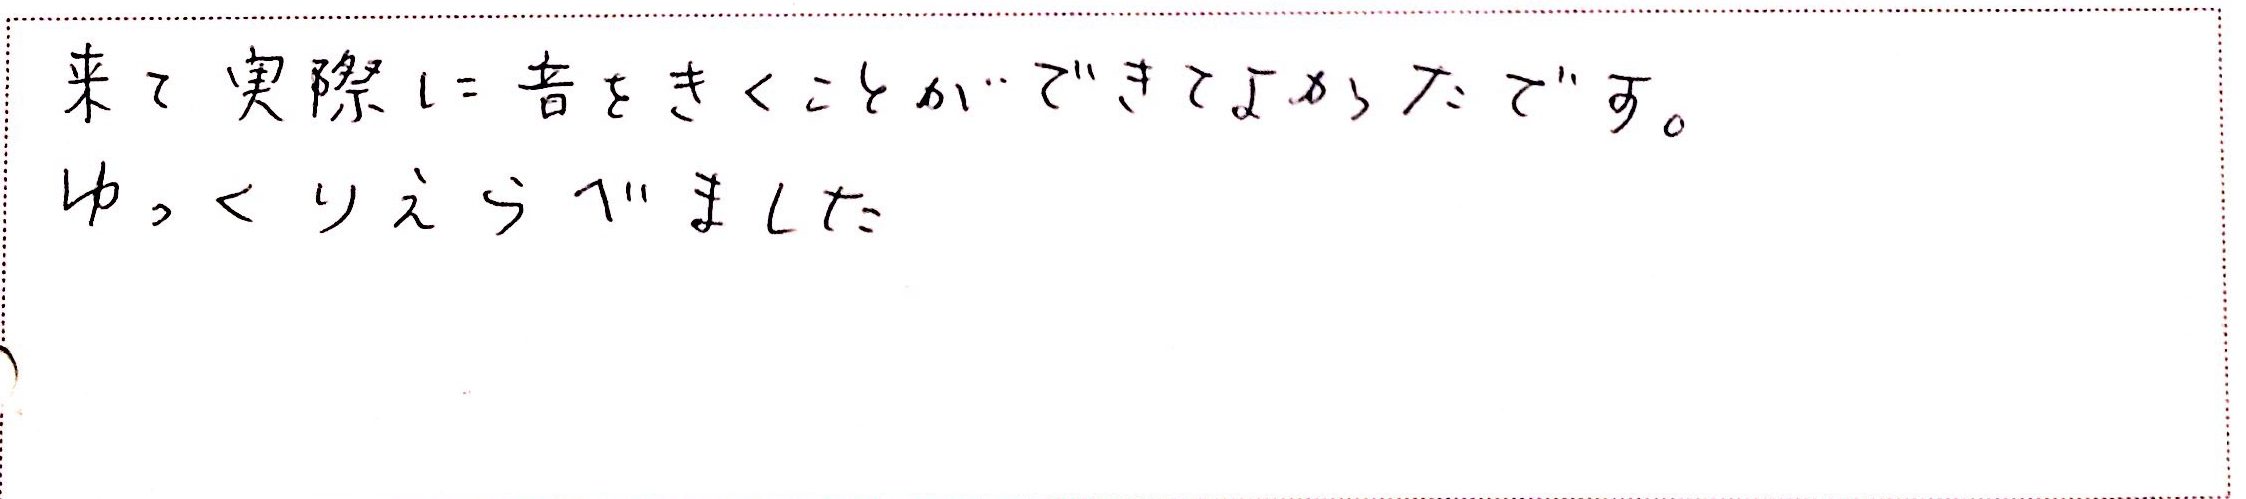 来て実際に音をきくことができてよかったです。
ゆっくりえらべました